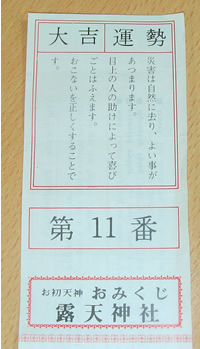 大吉運勢
災害は自然に去り、よい事が
あつまります。
目上の人の助けによって喜び
ごとはふえます。
おこないを正しくすることで
す。
第11番
お初天神 おみくじ
露天神社